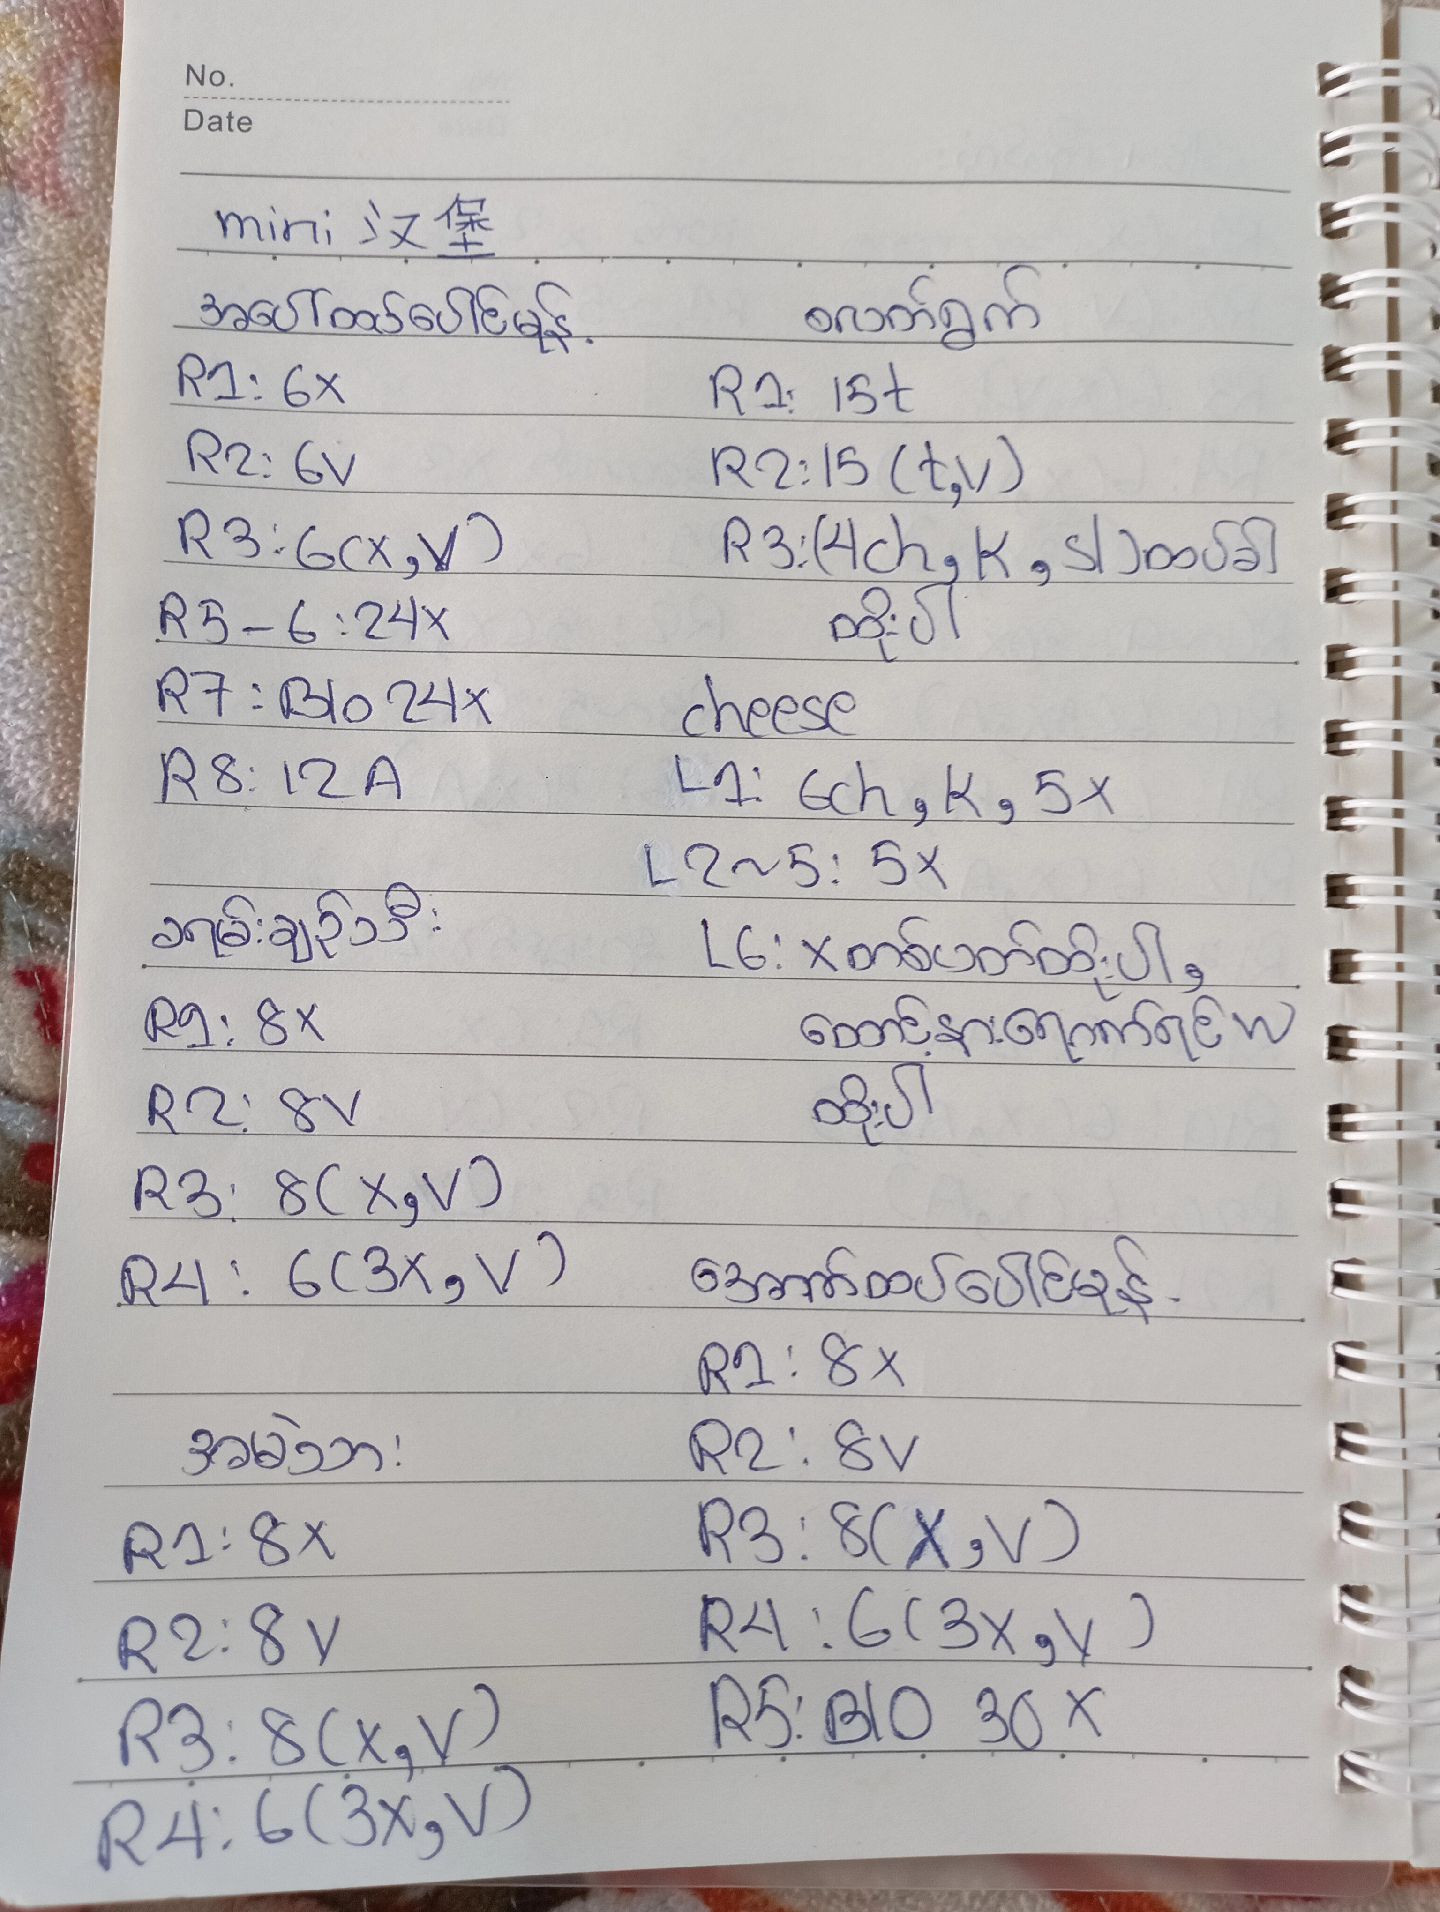 No.
Date
mini 汉堡
အပေါ်ထပ်ပေါင်မုန့်
R1: 6x
R2: 6v
R3: 6(x,v)
R5-6: 24x
R7: Blo 24x
R8: 12A
ခရမ်းချဉ်သီး
R1: 8x
R2: 8v
R3: 8(x,v)
R4: 6(3x,v)
အမဲသား
R1: 8x
R2: 8v
R3: 8(x,v)
R4: 6(3x,v)
စလတ်ရွက်
R1: 15t
R2: 15(t,v)
R3: (4ch, K, sl) ထပ်ခါ
ထိုးပါ
cheese
L1: 6ch, K, 5x
L2~5: 5x
L6: x တစ်ပတ်ထိုးပါ,
ထောင့်နားရောက်ရင် w
ထိုးပါ
အောက်ထပ်ပေါင်မုန့်
R1: 8x
R2: 8v
R3: 8(x,v)
R4: 6(3x,v)
R5: BLO 30x